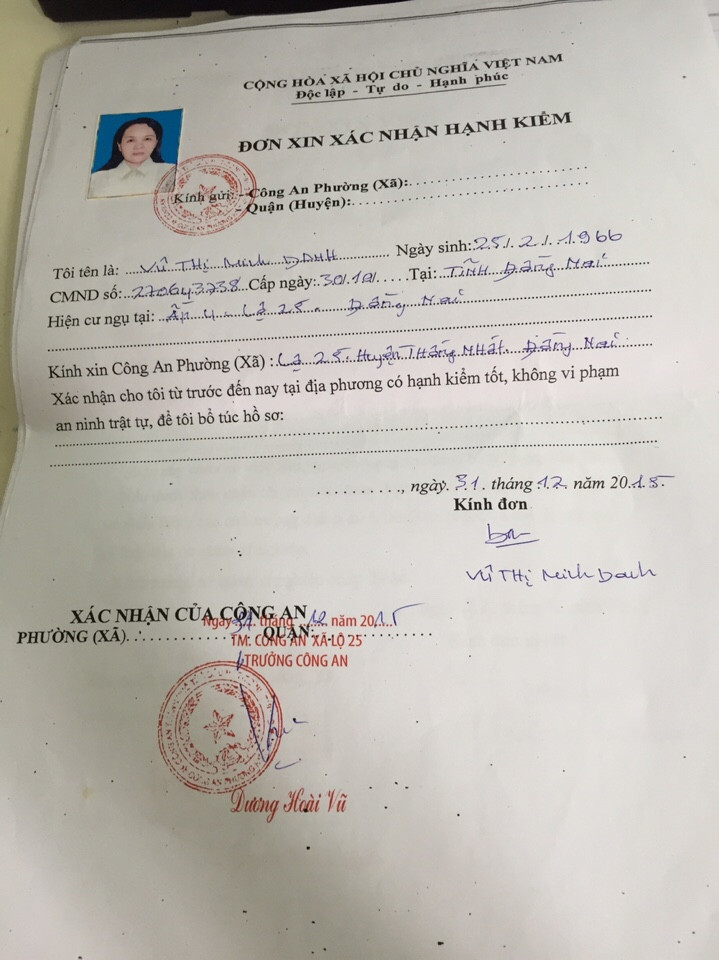 CỘNG HÒA XÃ HỘI CHỦ NGHĨA VIỆT NAM
Độc lập - Tự do - Hạnh phúc
ĐƠN XIN XÁC NHẬN HẠNH KIỂM
Kính gửi: - Công An Phường (Xã):
- Quận (Huyện):
Tôi tên là: Vũ Thị Minh Danh Ngày sinh: 25/2/1966
CMND số: Cấp ngày: Tại: Tỉnh Đồng Nai
Hiện cư ngụ tại: Ấp 4 - Lộ 25 - Đồng Nai
Kính xin Công An Phường (Xã) : Lộ 25 Huyện Thống Nhất Đồng Nai
Xác nhận cho tôi từ trước đến nay tại địa phương có hạnh kiểm tốt, không vi phạm
an ninh trật tự, để tôi bổ túc hồ sơ:
, ngày 31 tháng 12 năm 2015
Kính đơn
Vũ Thị Minh Danh
XÁC NHẬN CỦA CÔNG AN
Ngày 31 tháng 12 năm 2015
PHƯỜNG (XÃ) QUẬN:
TM. CÔNG AN XÃ LỘ 25
TRƯỞNG CÔNG AN
Dương Hoài Vũ